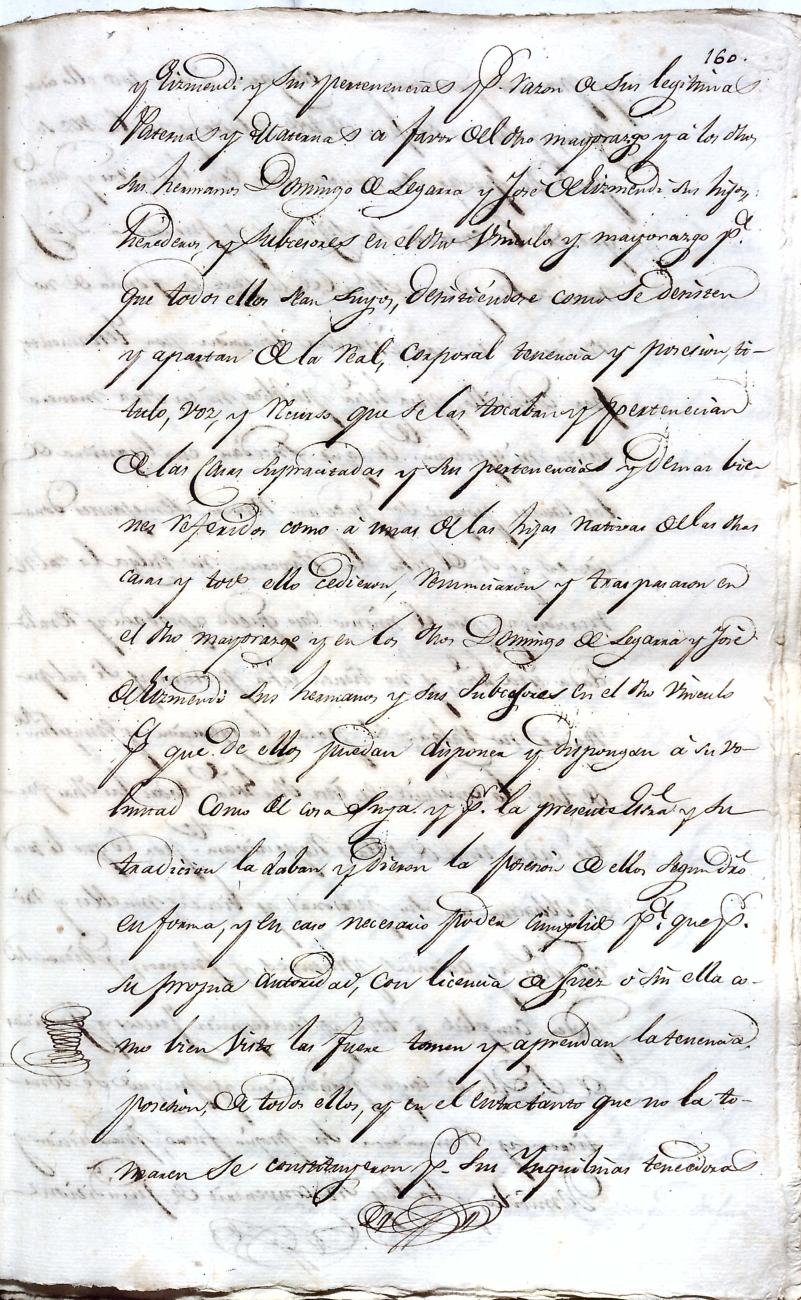 160.
y Eizmendi y sus pertenencias p.r razon de sus legitimas
Paternas y Maternas a favor del dho mayorazgo y à los dhos
sus hermanos Domingo de Legarra y José de Eizmendi sus hijos,
herederos, y subcesores en el dho Vinculo y mayorazgo p.a
que todos ellos sean suyos, desistiéndose como se desisten
y apartan de la real, corporal tenencia y posesion, ti-
tulo, voz, y recurso que se las tocaban y pertenecian
de las Casas supracitadas y sus pertenencias y demas bie
nes referidos como à unas de las hijas nativas de las dhas
casas y todo ello cedieron, renunciaron y traspasaron en
el dho mayorazgo y en los dhos Domingo de Legarra y José
de Eizmendi sus hermanos y sus subcesores en el dho Vinculo
p.a que de ellos puedan disponer y dispongan à su vo-
luntad como de cosa suya. y p.r la presente Esra y su
tradicion la daban, y dieron la posesion de ellos segun dro
en forma, y en caso necesario poder cumplido p.a que p.r
su propia autoridad, con licencia de Juez ó sin ella co-
mo bien visto las fuere tomen y aprendan la tenencia
posesion, de todos ellos, y en el entretanto que no la to-
maren se constituyeron p.r sus Ynquilinas tenedoras